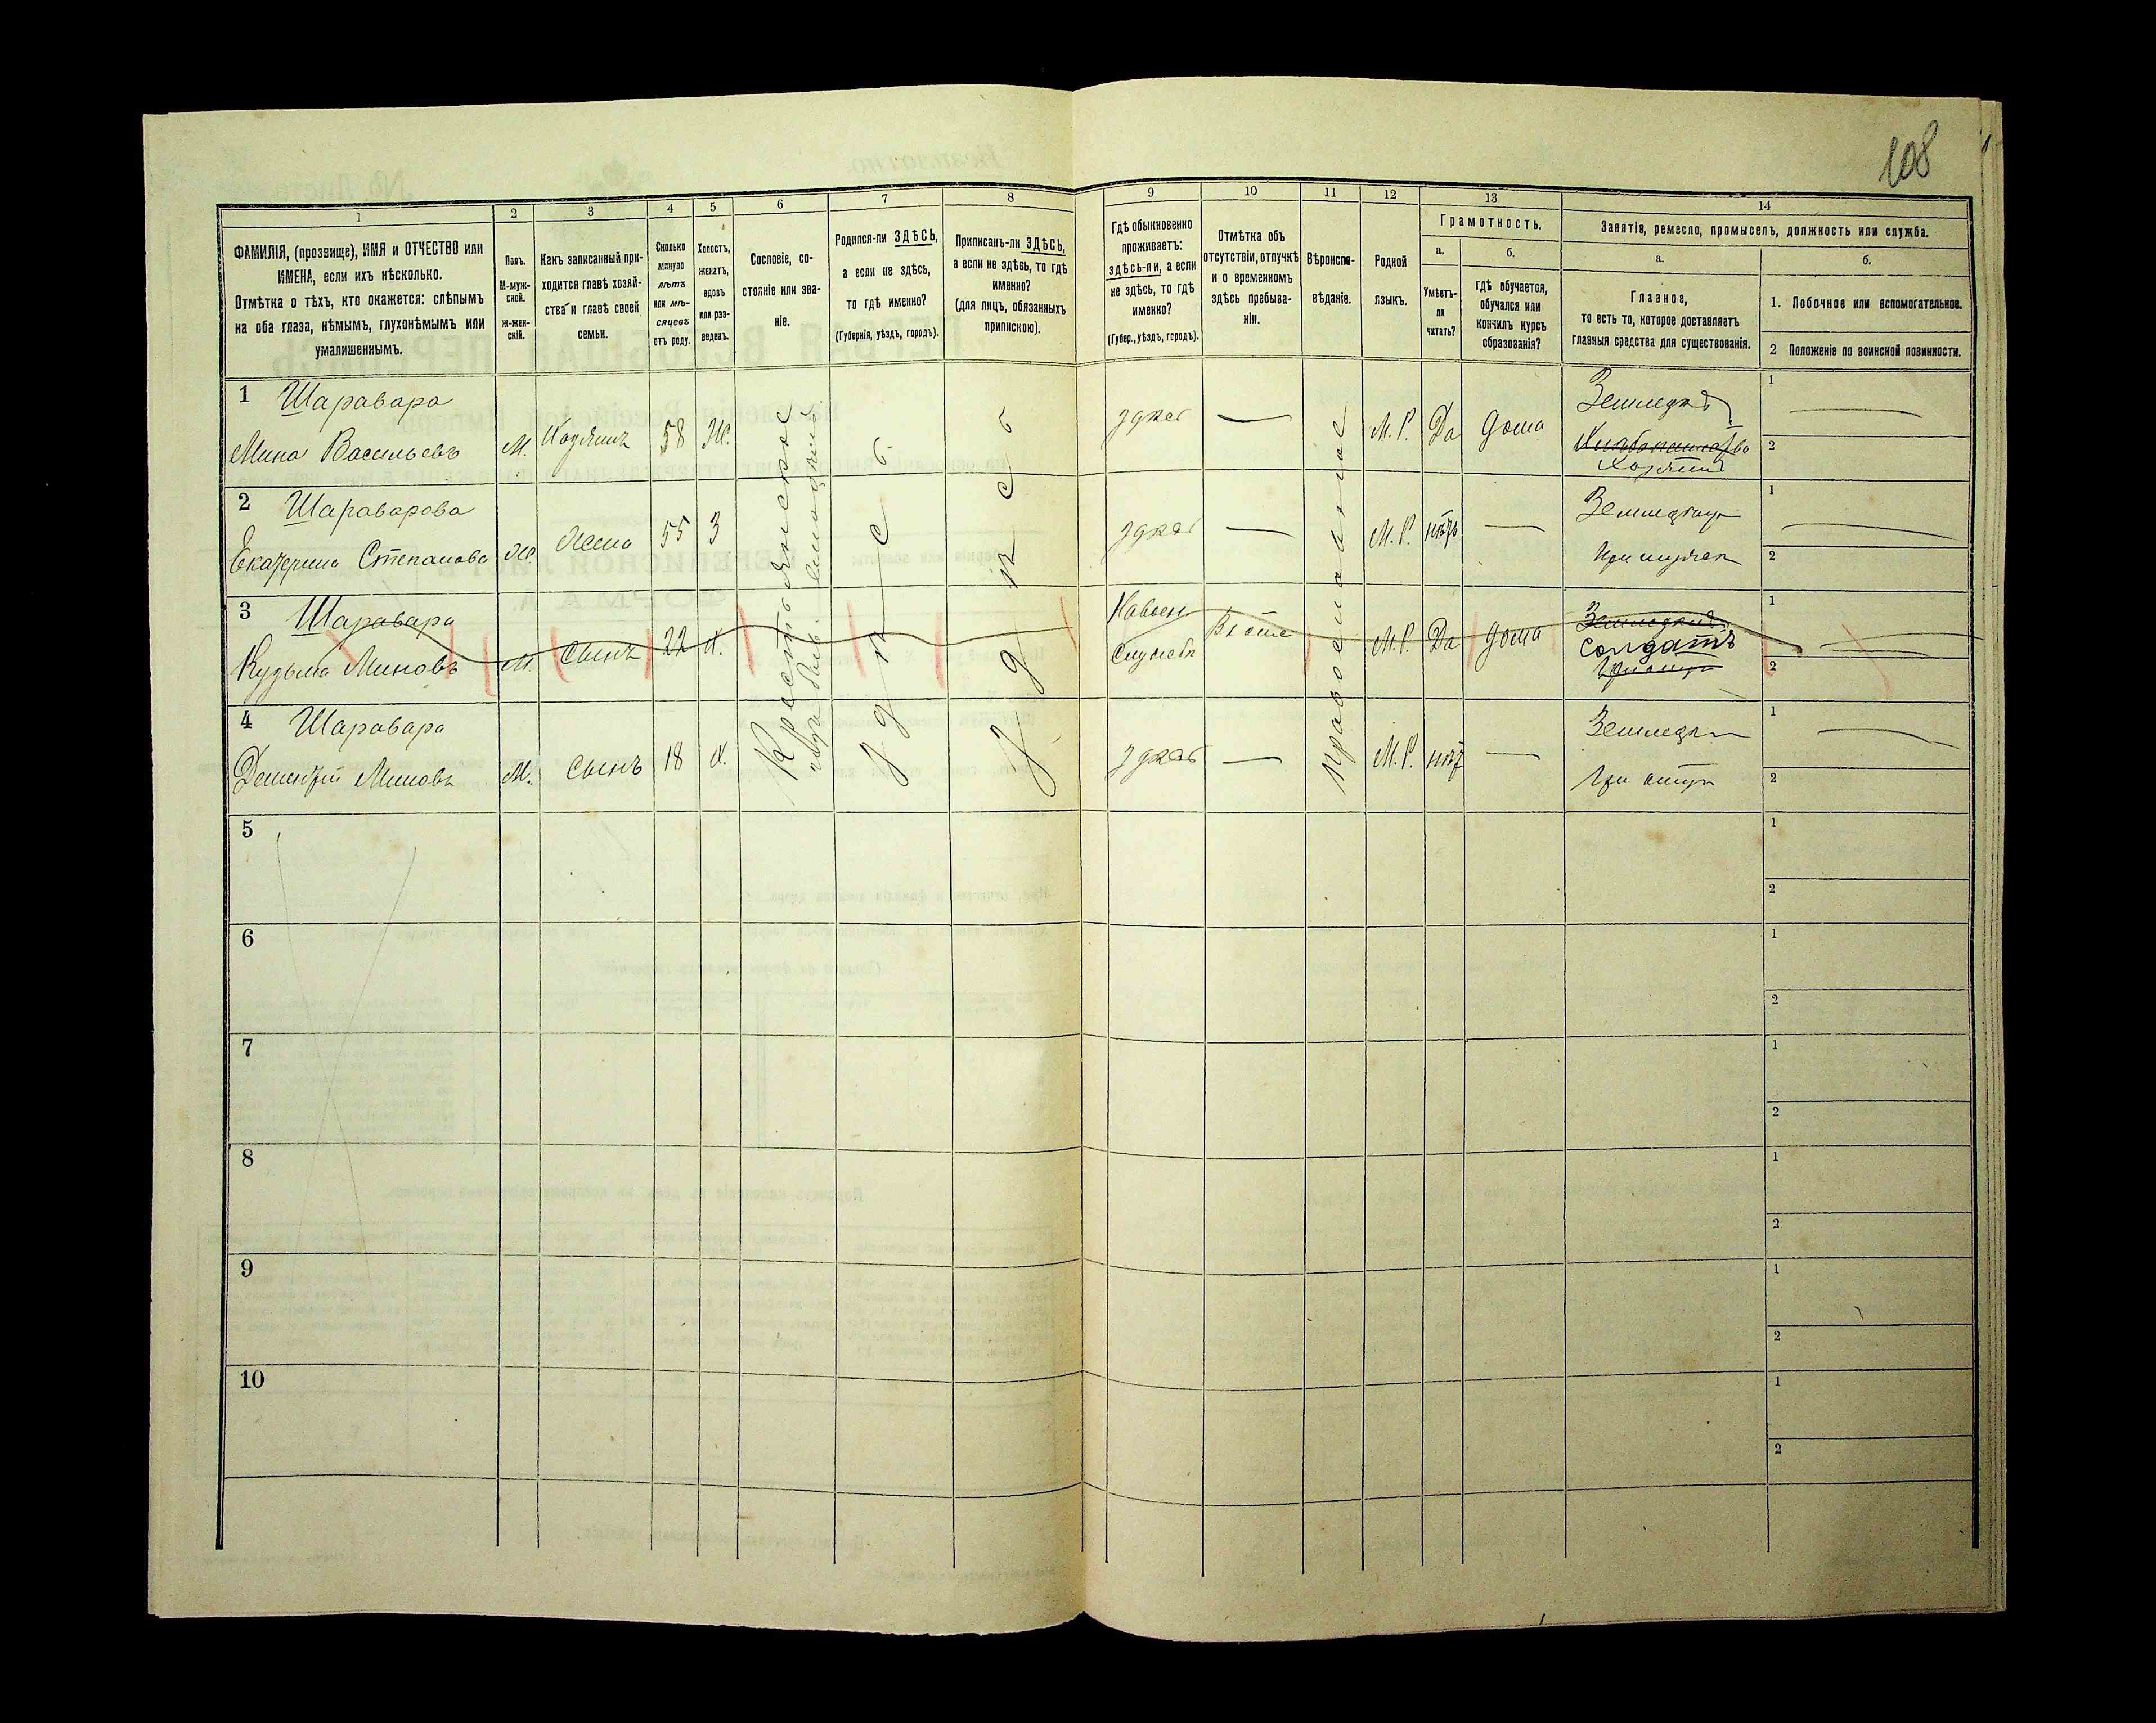 108
1
2
3
4
5
6
7
8
9
10
11
12
13
14
ФАМИЛІЯ, (прозвище), ИМЯ и ОТЧЕСТВО или
ИМЕНА, если ихъ нѣсколько.
Отмѣтка о тѣхъ, кто окажется: слѣпымъ
на оба глаза, нѣмымъ, глухонѣмымъ или
умалишеннымъ.
Полъ.
М-муж-
ской.
ж-жен-
скій.
Какъ записанный при-
ходится главѣ хозяй-
ства и главѣ своей
семьи.
Сколько
минуло
лѣтъ
или мѣ-
сяцевъ
отъ роду.
Холостъ,
женатъ,
вдовъ
или раз-
веденъ.
Сословіе, со-
стояніе или зва-
ніе.
Родился-ли ЗДѢСЬ,
а если не здѣсь,
то гдѣ именно?
(Губернія, уѣздъ, городъ).
Приписанъ-ли ЗДѢСЬ,
а если не здѣсь, то гдѣ
именно?
(для лицъ, обязанныхъ
припискою).
Гдѣ обыкновенно
проживаетъ:
здѣсь-ли, а если
не здѣсь, то гдѣ
именно?
(Губер., уѣздъ, городъ).
Отмѣтка объ
отсутствіи, отлучкѣ
и о временномъ
здѣсь пребыва-
ніи.
Вѣроиспо-
вѣданіе.
Родной
языкъ.
Грамотность.
а.
Умѣетъ-
ли
читать?
б.
Гдѣ обучается,
обучался или
кончилъ курсъ
образованія?
Занятія, ремесло, промыселъ, должность или служба.
а.
Главное,
то есть то, которое доставляетъ
главныя средства для существованія.
б.
1. Побочное или вспомогательное.
2 Положеніе по воинской повинности.
1 Шаравара
Мина Васильевъ М. Хозяинъ 58 Ж.
здѣсь — М. Р. Да дома
Хозяинъ
1
2
2 Шараварова
Екатерина Степанова Ж. жена 55 З
здѣсь — М. Р. нѣтъ —
При мужѣ
1
2
3 Шаравара
Кузьма Миновъ М. сынъ 22 Х.
М. Р. Да дома
Солдатъ
1
2
4 Шаравара
Дмитрій Миновъ М. сынъ 18 Х.
здѣсь — М. Р. нѣтъ —
При отцѣ
1
2
Крестьянское
здѣсь
здѣсь
Православное
5
1
2
6
1
2
7
1
2
8
1
2
9
1
2
10
1
2